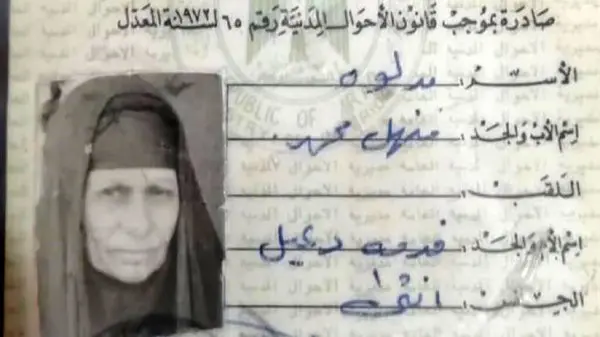 صادرة بموجب قانون الأحوال المدنية رقم ٦٥ لسنة ١٩٧٢ المعدل
الأسم: مدلوه
اسم الأب والجد: منهل محمد
اللقب:
اسم الأم والجد: دعيل
الجنس: انثى